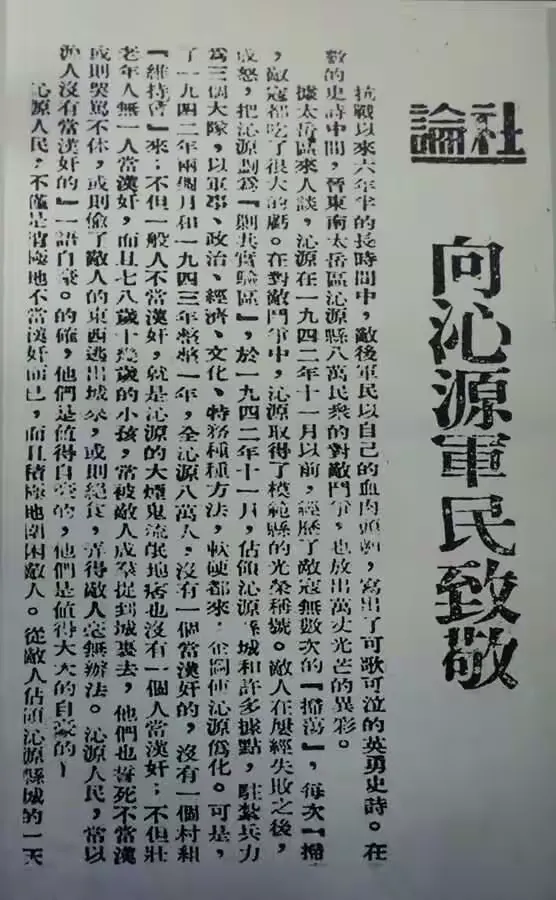 社論
向沁源軍民致敬
抗戰以來六年半的長時間中，敵後軍民以自己的血肉頭顱，寫出了可歌可泣的英勇史詩。在
數的史詩中間，晉東南太岳區沁源縣八萬民衆的對敵鬥爭，也放出萬丈光芒的異彩。
據太岳區來人談，沁源在一九四二年十一月以前，經歷了敵寇無數次的『掃蕩』，每次『掃
，敵寇都吃了很大的虧。在對敵鬥爭中，沁源取得了模範縣的光榮稱號。敵人在屢經失敗之後，
成怒，把沁源劃爲『剿共實驗區』，於一九四二年十一月，佔領沁源縣城和許多據點，駐紮兵力
爲三個大隊，以軍事、政治、經濟、文化、特務種種方法，軟硬都來，企圖使沁源僞化。可是，
了一九四二年兩個月和一九四三年整整一年，全沁源八萬人，沒有一個當漢奸的，沒有一個村組
『維持會』來；不但一般人不當漢奸，就是沁源的大煙鬼流氓地痞也沒有一個人當漢奸；不但壯
老年人無一人當漢奸，而且七八歲十幾歲的小孩，當被敵人成羣捉到城裏去，他們也誓死不當漢
或則哭罵不休，或則偷了敵人的東西逃出城來，或則絕食，弄得敵人毫無辦法。沁源人民，常以
源人沒有當漢奸的』一語自豪。的確，他們是值得自豪的，他們是值得大大的自豪的！
沁源人民，不僅是消極地不當漢奸而已，而且積極地圍困敵人。從敵人佔領沁源縣城的一天